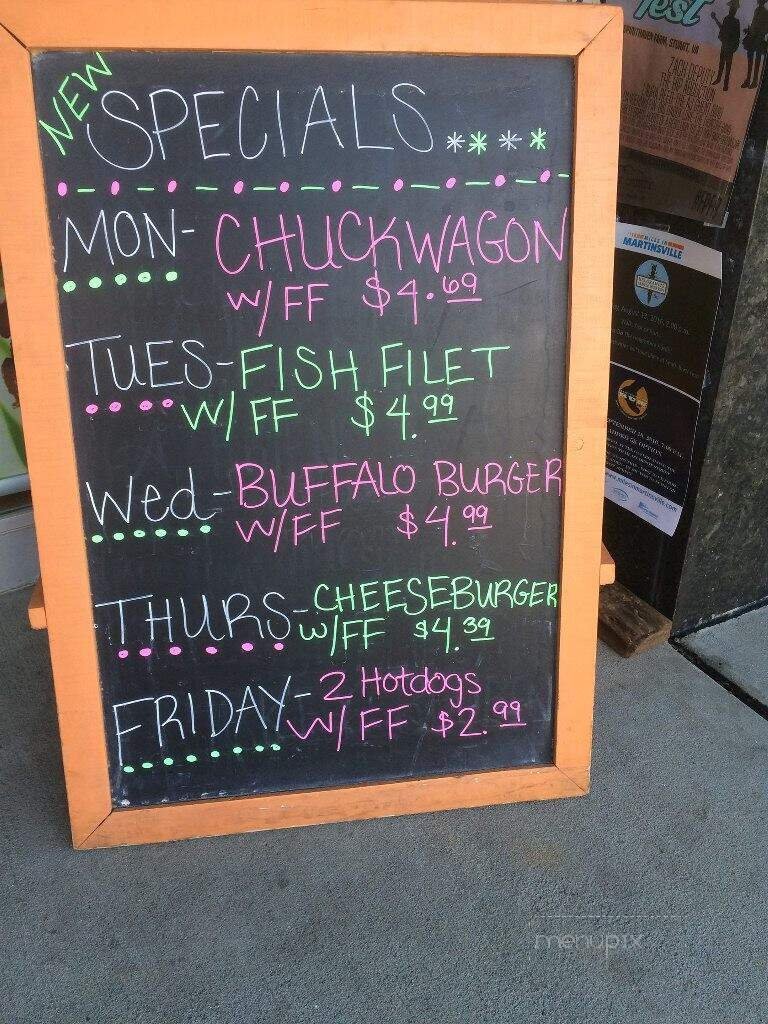 NEW
SPECIALS....
MON- CHUCKWAGON
W/FF $4.69
TUES- FISH FILET
W/FF $4.99
Wed- BUFFALO BURGER
W/FF $4.99
THURS- CHEESEBURGER
W/FF $4.39
FRIDAY- 2 Hotdogs
W/FF $2.99
fest
STUART, VA
ZACH DEPUTY
MARTINSVILLE
www.milesinmartinsville.com
menupix